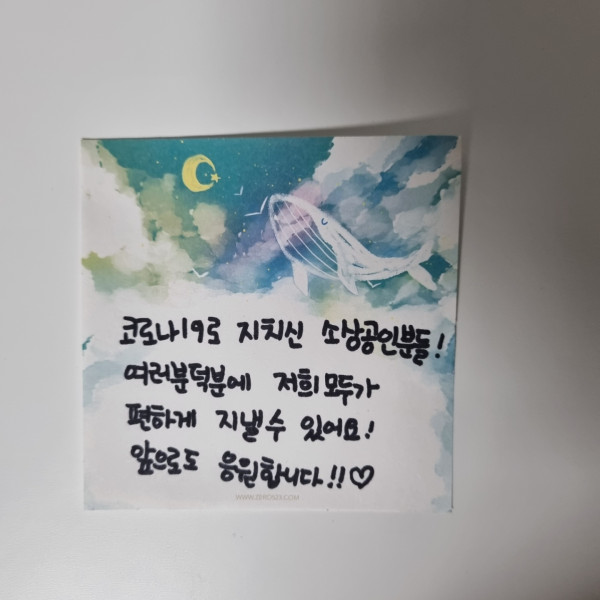 코로나19로 지치신 소상공인분들!
여러분덕분에 저희 모두가
편하게 지낼 수 있어요!
앞으로도 응원합니다!!♡